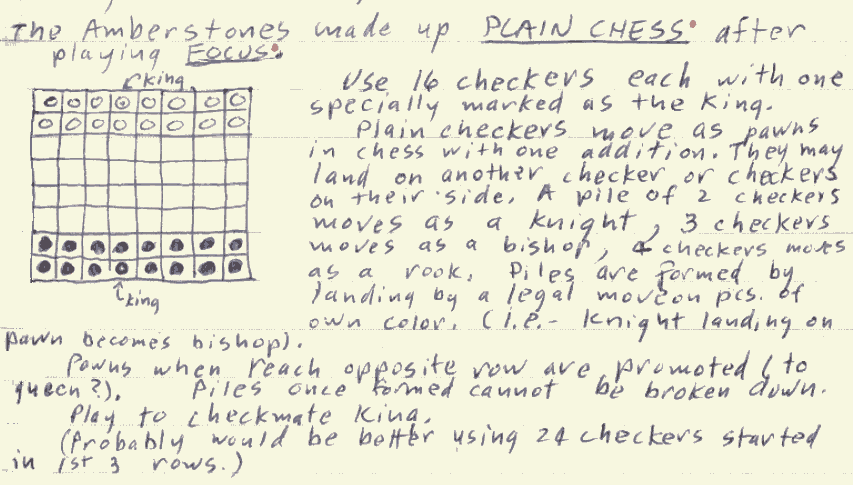 The Amberstones made up PLAIN CHESS after
playing FOCUS.
king
Use 16 checkers each with one
specially marked as the King.
Plain checkers move as pawns
in chess with one addition. They may
land on another checker or checkers
on their side. A pile of 2 checkers
moves as a knight, 3 checkers
moves as a bishop, 4 checkers moves
as a rook. Piles are formed by
landing by a legal move on pcs. of
own color. (i.e.- knight landing on
king
pawn becomes bishop).
Pawns when reach opposite row are promoted (to
queen?). Piles once formed cannot be broken down.
Play to checkmate King.
(Probably would be better using 24 checkers started
in 1st 3 rows.)